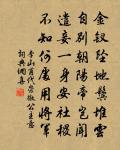 金釵墜地鬢堆雲
自別朝陽帝豈聞
遣妾一身安社稷
不知何處用將軍
李山甫代崇徽公主意
詞典網